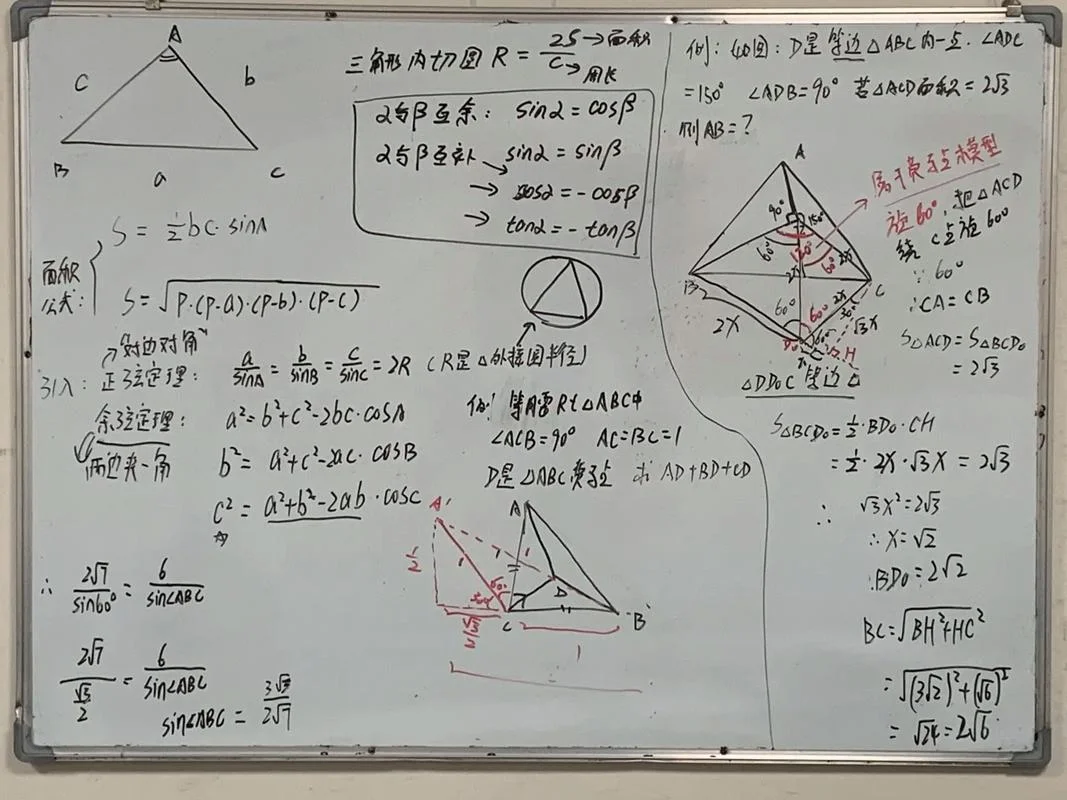 A
c
b
B
a
C
面积公式:
S = ½bc·sinA
S = √P·(P-a)·(P-b)·(P-c)
对边对角
引入: 正弦定理: a/sinA = b/sinB = c/sinC = 2R (R是△外接圆半径)
余弦定理: a² = b²+c²-2bc·cosA
两边夹一角
b² = a²+c²-2ac·cosB
c² = a²+b²-2ab·cosC
∴ 2√7/sin60° = 6/sin∠ABC
2√7/(√3/2) = 6/sin∠ABC
sin∠ABC = 3√3/2√7
三角形内切圆 R = 2S/C
→面积
→周长
α与β互余: sinα = cosβ
α与β互补 → sinα = sinβ
→ cosα = -cosβ
→ tanα = -tanβ
例: 等腰Rt△ABC中
∠ACB=90° AC=BC=1
D是△ABC费马点 求AD+BD+CD
A'
A
½
1
1
60°
30°
D
√3/2
C
B
1
例: 如图: D是等边△ABC内一点. ∠ADC
=150° ∠ADB=90° 若△ACD面积=2√3
则AB=?
A
90°
150°
60°
120°
60°
2x
2x
B
C
2x
60°
60°
2x
30°
√3x
D₀
60°
x
H
△DD₀C等边△
属于费马点模型
旋60°, 把△ACD
绕C点旋60°
∵60°
∵CA=CB
S△ACD = S△BCD₀
= 2√3
S△BCD₀ = ½·BD₀·CH
= ½·2x·√3x = 2√3
∴ √3x² = 2√3
∴x=√2
∴BD₀=2√2
BC=√BH²+HC²
= √(3√2)²+(√6)²
= √24 = 2√6